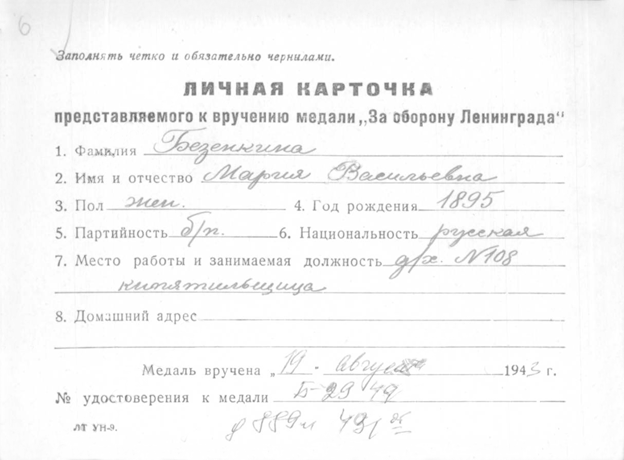 6
Заполнять четко и обязательно чернилами.
ЛИЧНАЯ КАРТОЧКА
представляемого к вручению медали „За оборону Ленинграда“
1. Фамилия Безенкина
2. Имя и отчество Мария Васильевна
3. Пол жен. 4. Год рождения 1895
5. Партийность б/п. 6. Национальность русская
7. Место работы и занимаемая должность д/х. N108
кипятильщица
8. Домашний адрес
Медаль вручена „19 августа 1943 г.
№ удостоверения к медали Б-29 49
ЛТ УН-9.